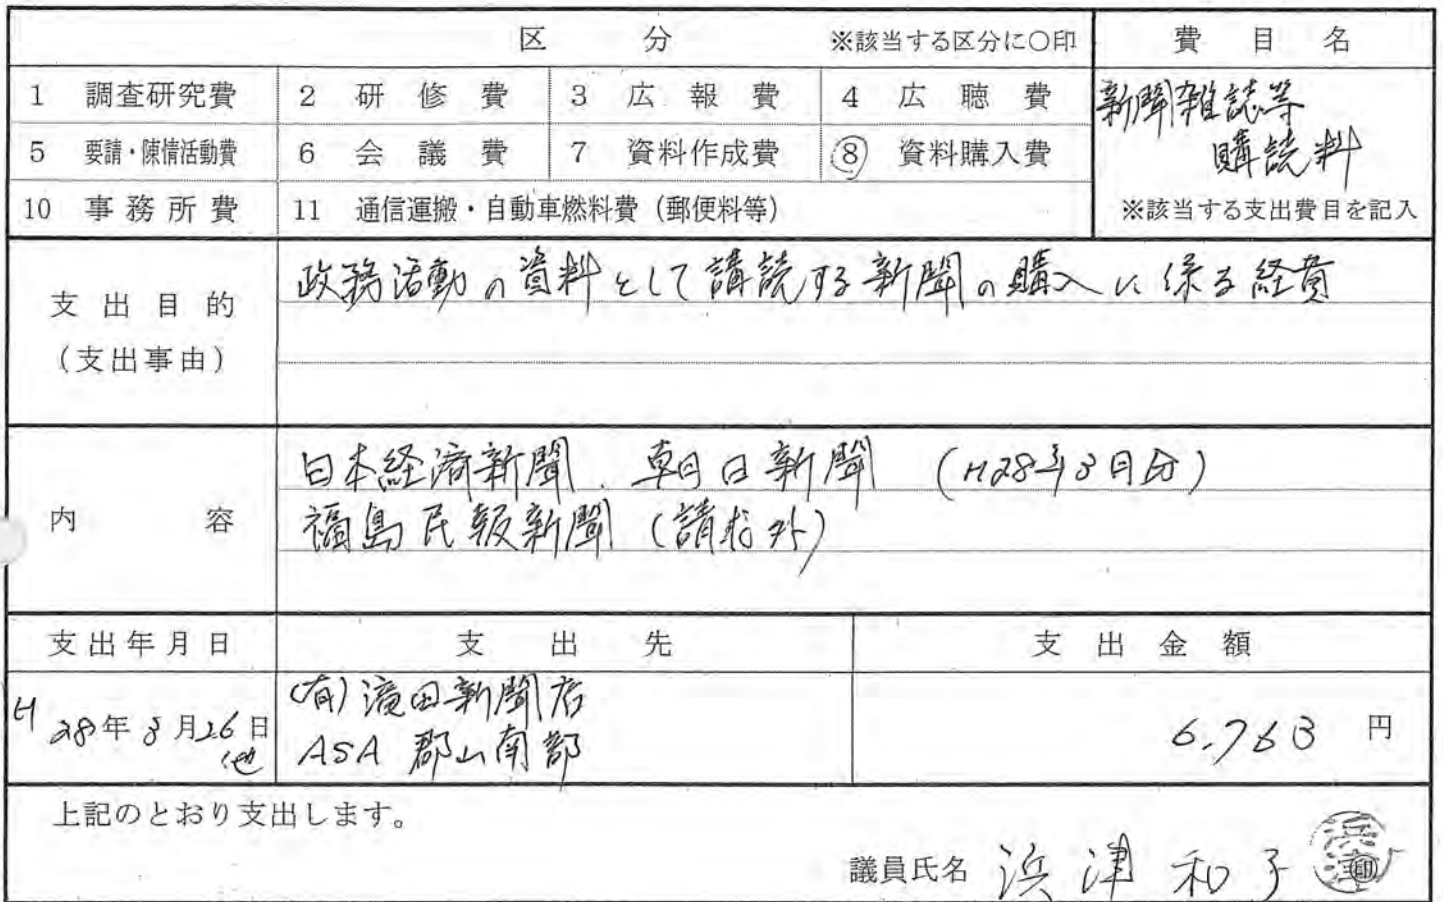 区 分 ※該当する区分に○印
費 目 名
1 調査研究費 2 研修費 3 広報費 4 広聴費
5 要請・陳情活動費 6 会議費 7 資料作成費 8 資料購入費
10 事務所費 11 通信運搬・自動車燃料費(郵便料等)
新聞雑誌等
購読料
※該当する支出費目を記入
支出目的
(支出事由)
政務活動の資料として講読する新聞の購入に係る経費
内 容
日本経済新聞、朝日新聞 (H28年3月分)
福島民報新聞(請求外)
支出年月日 支 出 先 支 出 金 額
H28年3月26日
他
(有)滝田新聞店
ASA 郡山南部
6,763 円
上記のとおり支出します。
議員氏名 浜津和子 浜津 印